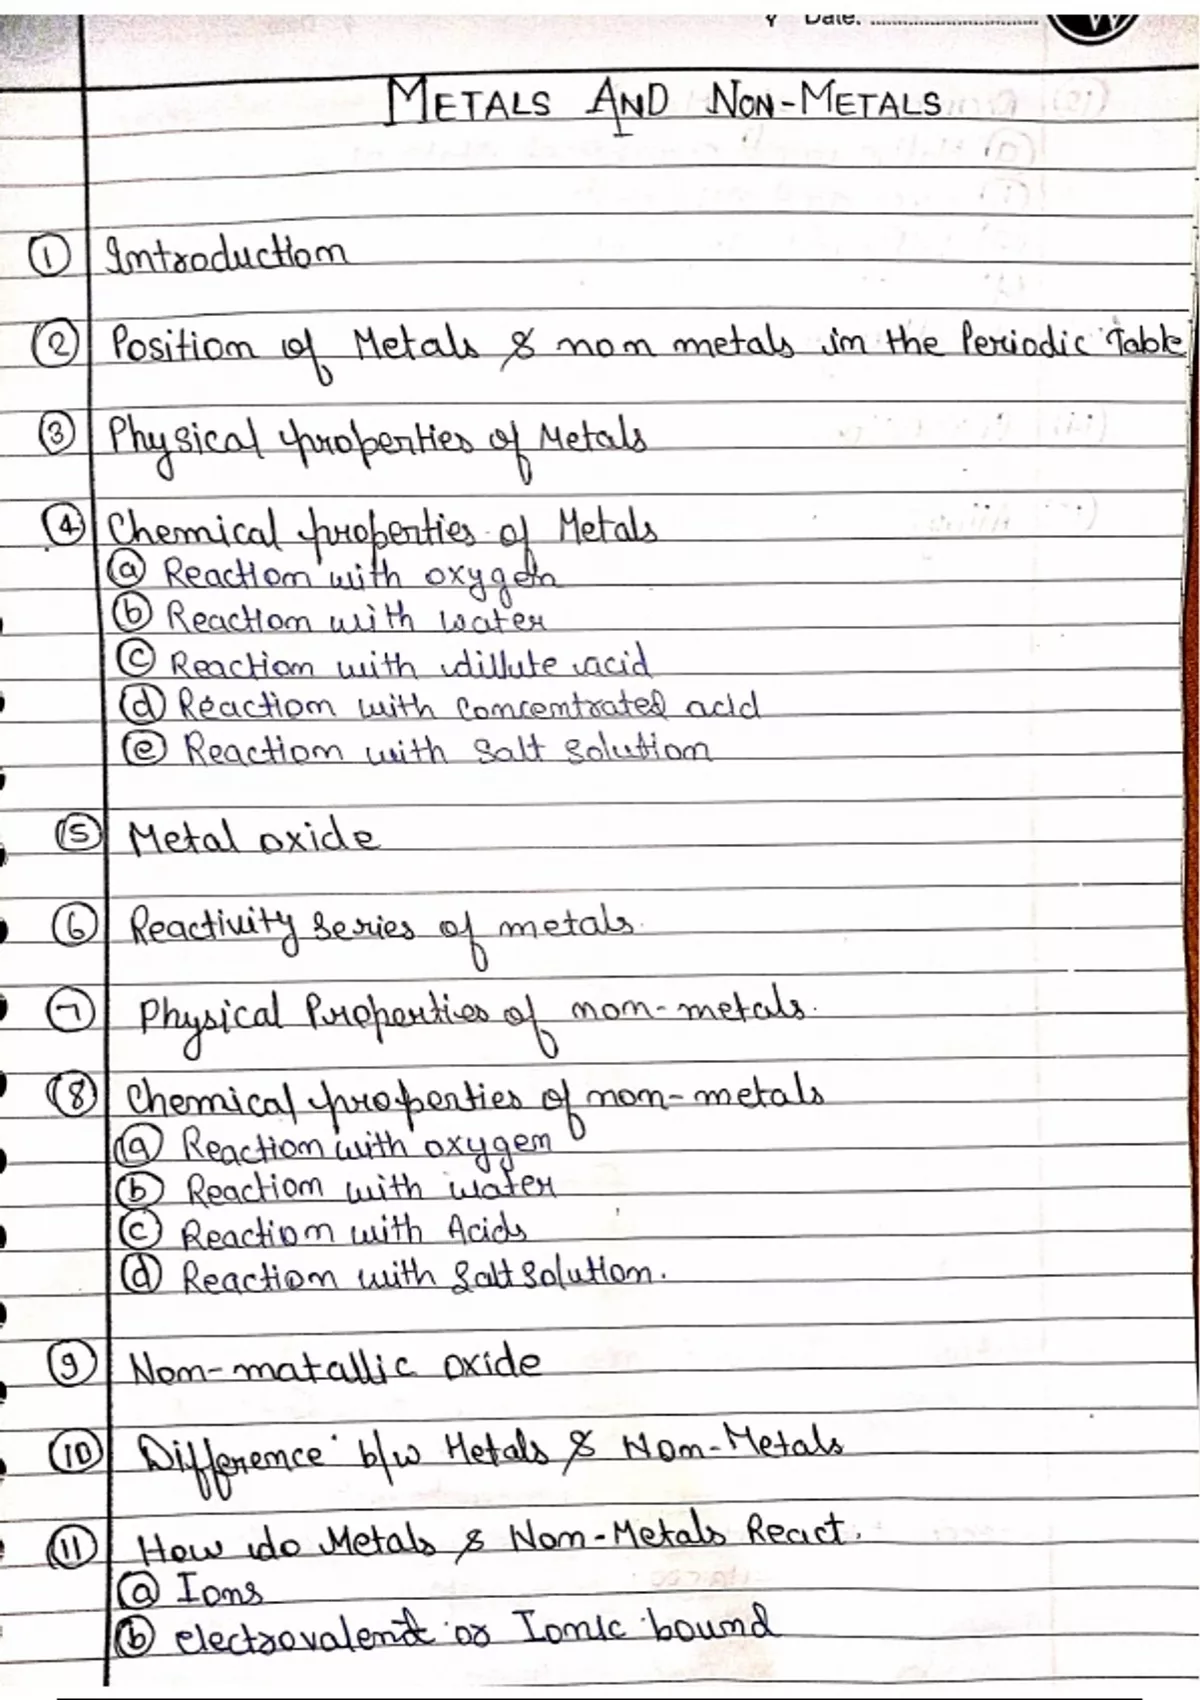 Date:
METALS AND NON-METALS
① Introduction
② Position of Metals & non metals in the Periodic Table
③ Physical properties of Metals
④ Chemical properties of Metals
ⓐ Reaction with oxygen
ⓑ Reaction with water
ⓒ Reaction with dillute acid
ⓓ Reaction with Concentrated acid
ⓔ Reaction with Salt Solution
⑤ Metal oxide
⑥ Reactivity Series of metals.
⑦ Physical Properties of non-metals.
⑧ Chemical properties of non-metals
ⓐ Reaction with oxygen
ⓑ Reaction with water
ⓒ Reaction with Acids
ⓓ Reaction with Salt Solution.
⑨ Non-matallic oxide
⑩ Difference b/w Metals & Non-Metals
⑪ How do Metals & Non-Metals React.
ⓐ Ions
ⓑ electrovalent or Ionic bound